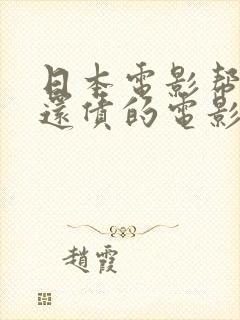 日本電影幫
還債的電影
趙霞